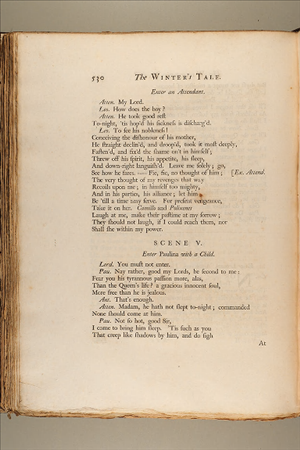 530 The WINTER's TALE.
Enter an Attendant.
Atten. My Lord.
Leo. How does the boy?
Atten. He took good rest
To-night, 'tis hop'd his sickness is discharg'd.
Leo. To see his nobleness!
Conceiving the dishonour of his mother,
He straight declin'd, and droop'd, took it most deeply,
Fasten'd, and fix'd the shame on't in himself;
Threw off his spirit, his appetite, his sleep,
And down-right languish'd. Leave me solely; go,
See how he fares. — Fie, fie, no thought of him; [Ex. Attend.
The very thought of my revenges that way
Recoils upon me; in himself too mighty,
And in his parties, his alliance; let him
Be 'till a time may serve. For present vengeance,
Take it on her. Camillo and Polixenes
Laugh at me, make their pastime at my sorrow;
They should not laugh, if I could reach them, nor
Shall she within my power.
SCENE V.
Enter Paulina with a Child.
Lord. You must not enter.
Pau. Nay rather, good my Lords, be second to me:
Fear you his tyrannous passion more, alas,
Than the Queen's life? a gracious innocent soul,
More free than he is jealous.
Ant. That's enough.
Atten. Madam, he hath not slept to-night; commanded
None should come at him.
Pau. Not so hot, good Sir,
I come to bring him sleep. 'Tis such as you
That creep like shadows by him, and do sigh
At